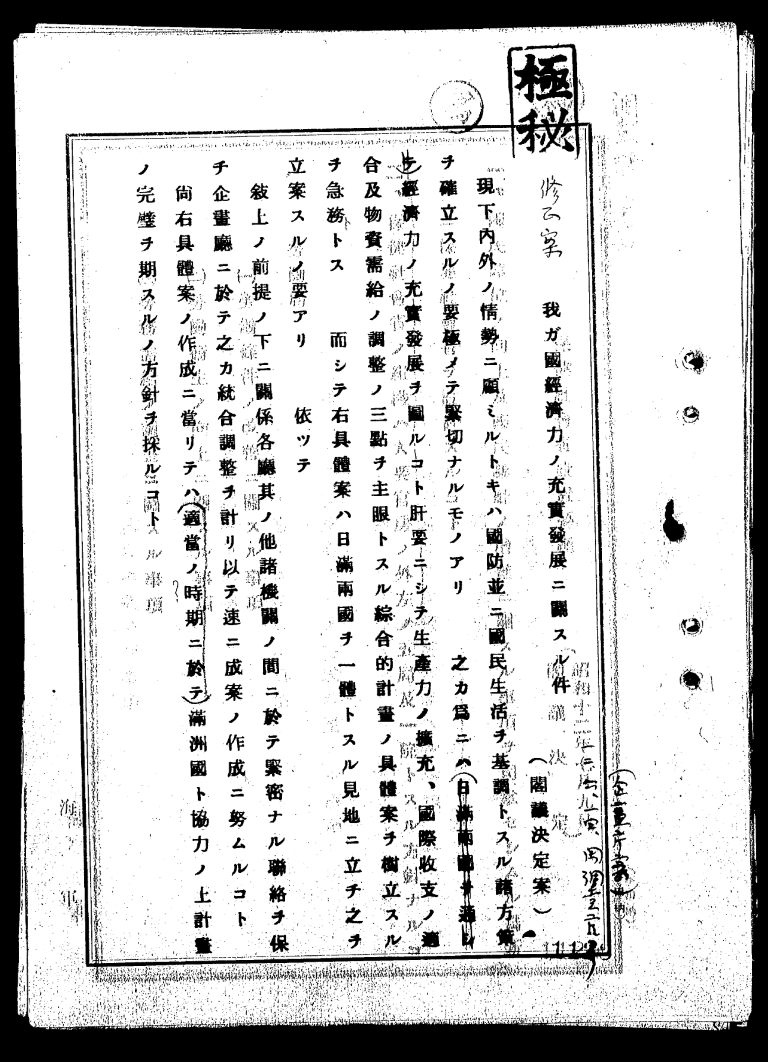 極秘
修正案
我ガ國經濟力ノ充實發展ニ關スル件
(閣議決定案)
現下內外ノ情勢ニ顧ミルトキハ國防並ニ國民生活ヲ基調トスル諸方策
ヲ確立スルノ要極メテ緊切ナルモノアリ 之カ爲ニハ(日滿兩國ヲ通シ
テ)經濟力ノ充實發展ヲ圖ルコト肝要ニシテ生產力ノ擴充、國際收支ノ適
合及物資需給ノ調整ノ三點ヲ主眼トスル綜合的計畫ノ具體案ヲ樹立スル
ヲ急務トス 而シテ右具體案ハ日滿兩國ヲ一體トスル見地ニ立チ之ヲ
立案スルノ要アリ 依ツテ
敍上ノ前提ノ下ニ關係各廳其ノ他諸機關ノ間ニ於テ緊密ナル聯絡ヲ保
チ企畫廳ニ於テ之カ統合調整ヲ計リ以テ速ニ成案ノ作成ニ努ムルコト
尙右具體案ノ作成ニ當リテハ(適當ノ時期ニ於テ)滿洲國ト協力ノ上計畫
ノ完璧ヲ期スルノ方針ヲ採ルコト
海軍